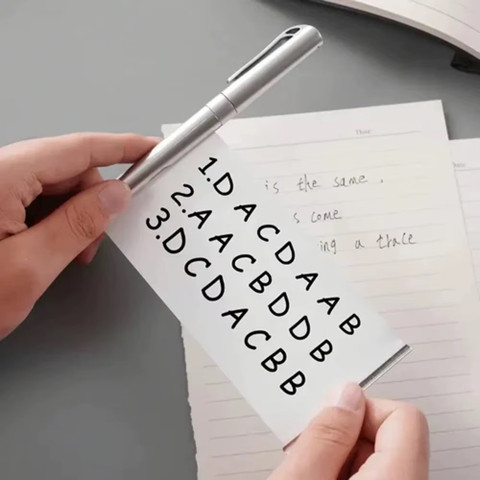 1.D A C D A A B
2.A A C B D D B
3.D C D A C B B
is the same .
s come
ing a trace